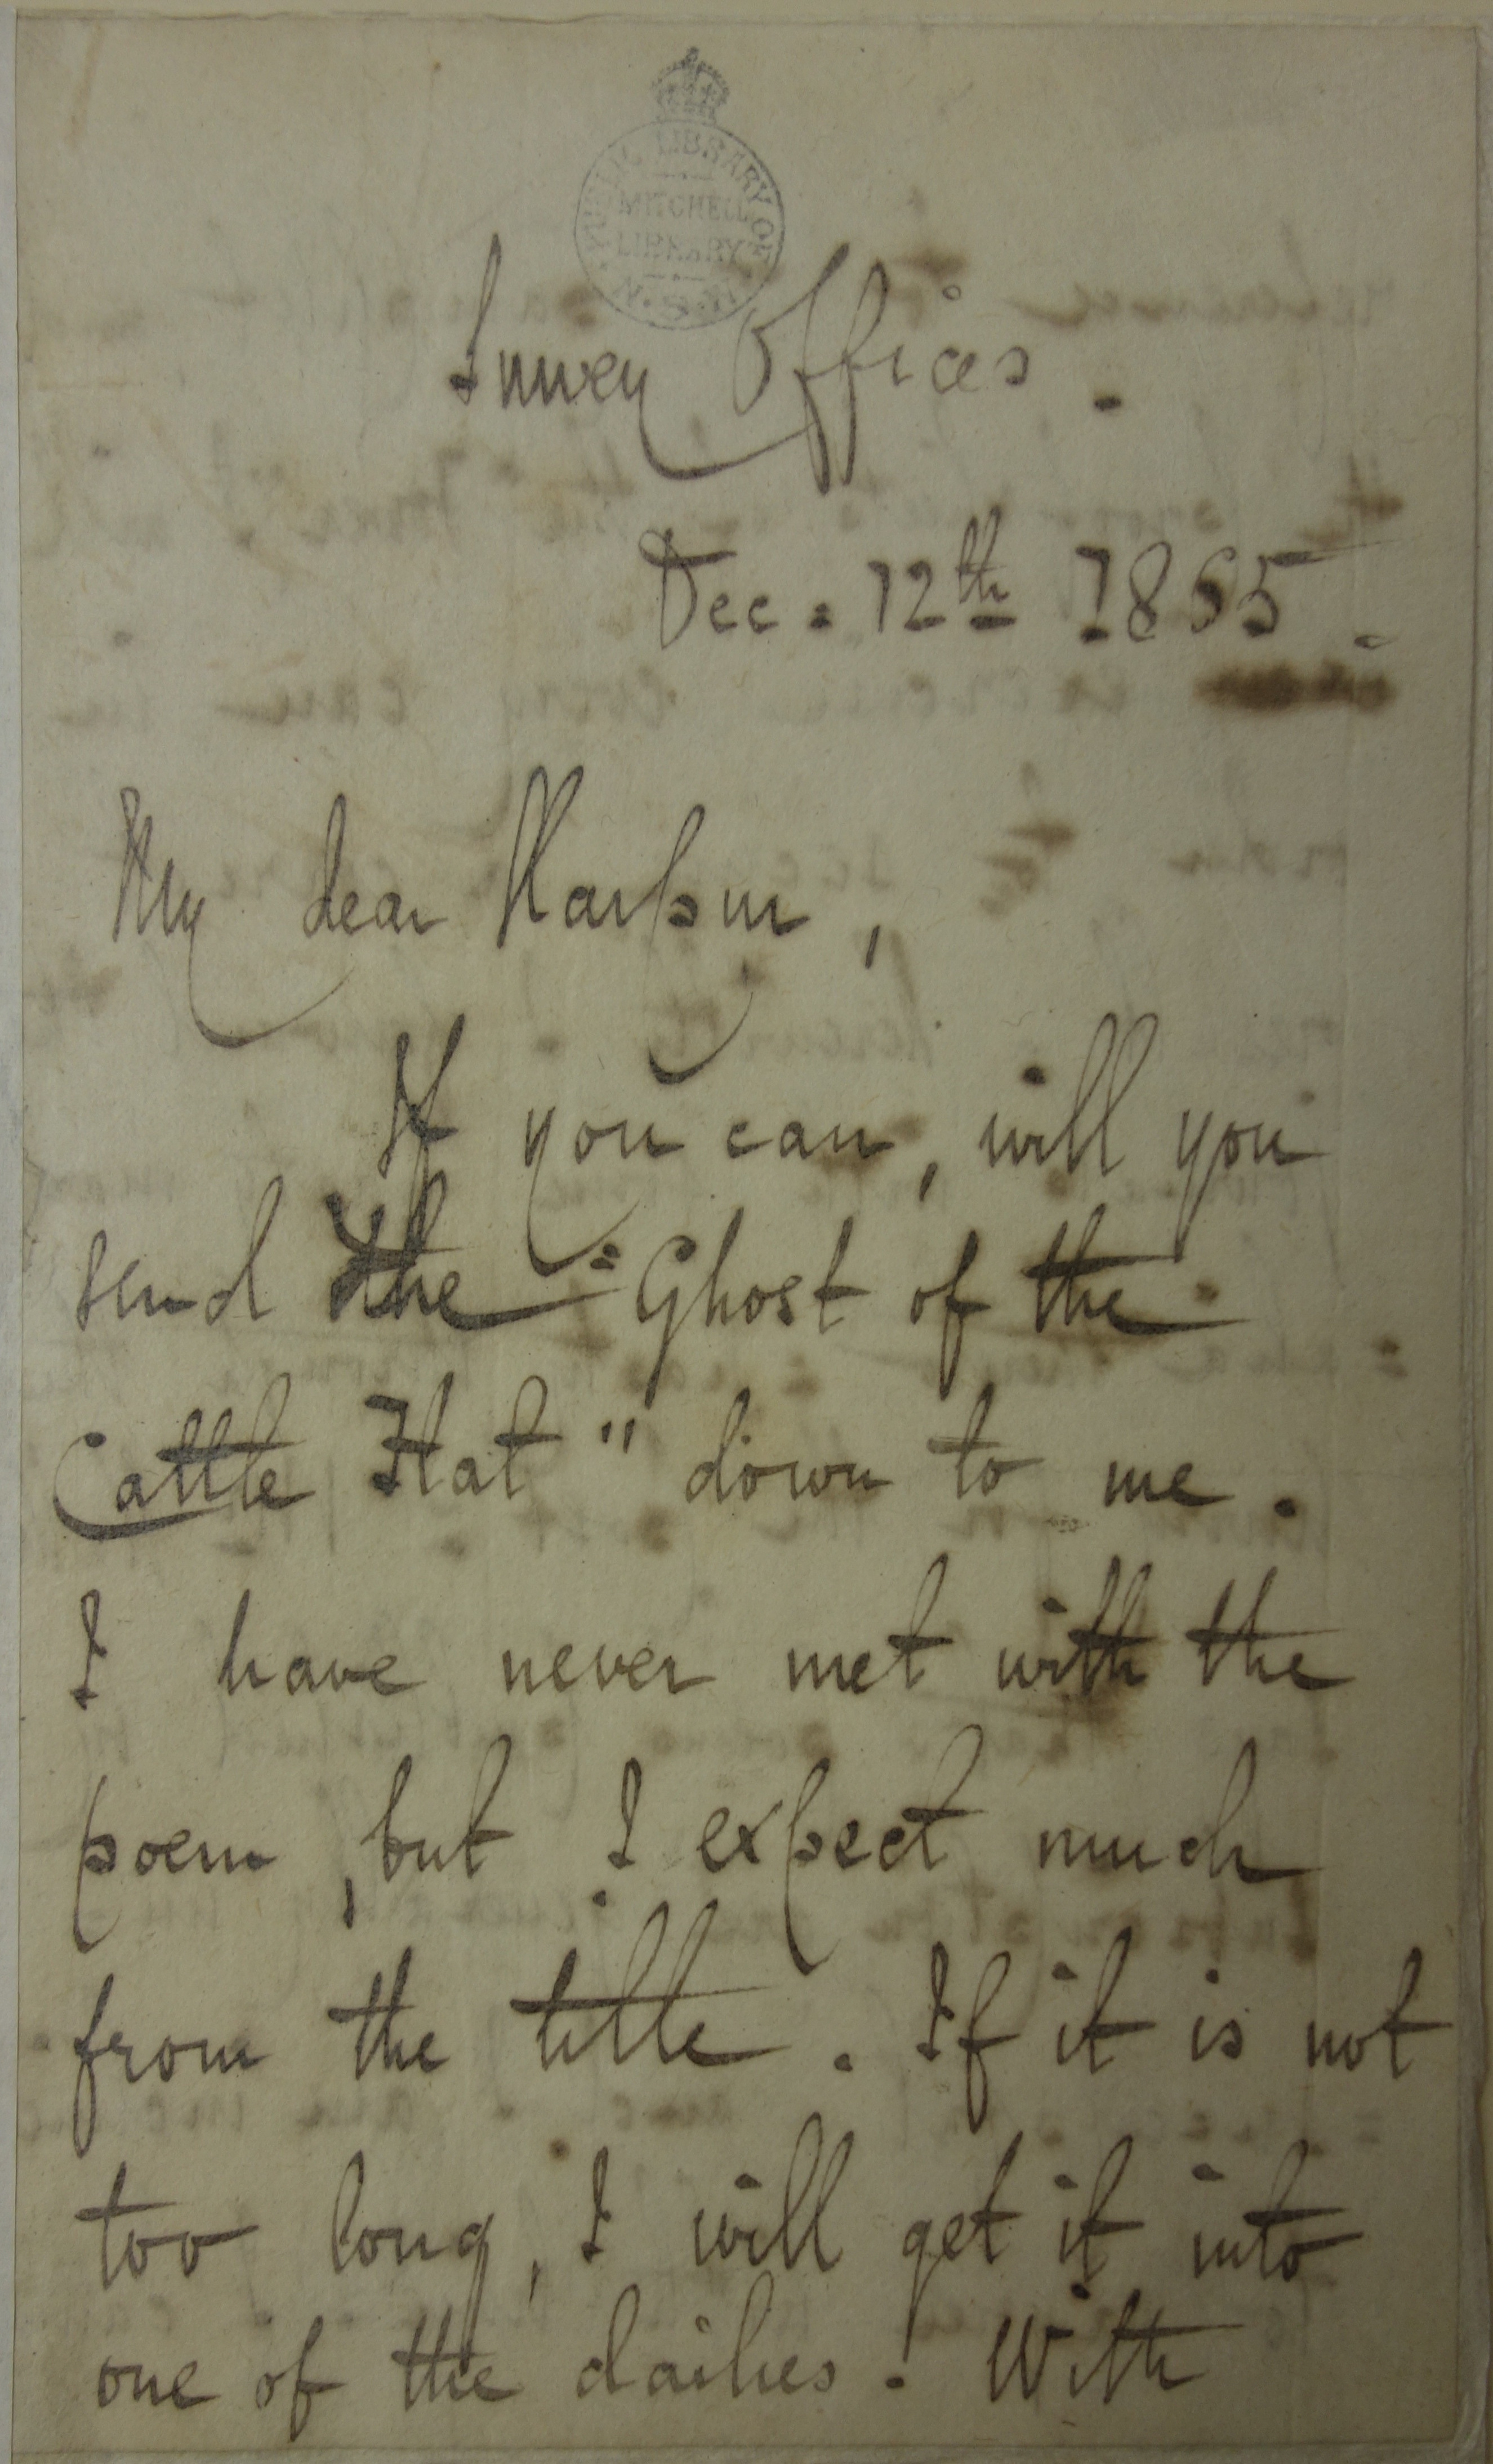 PUBLIC LIBRARY OF N.S.W.
MITCHELL
LIBRARY
Survey Offices.
Dec. 12th 1865.
My dear Harpur,
If you can, will you
send the "Ghost of the
Cattle Flat" down to me.
I have never met with the
poem, but I expect much
from the title. If it is not
too long, I will get it into
one of the dailies. With